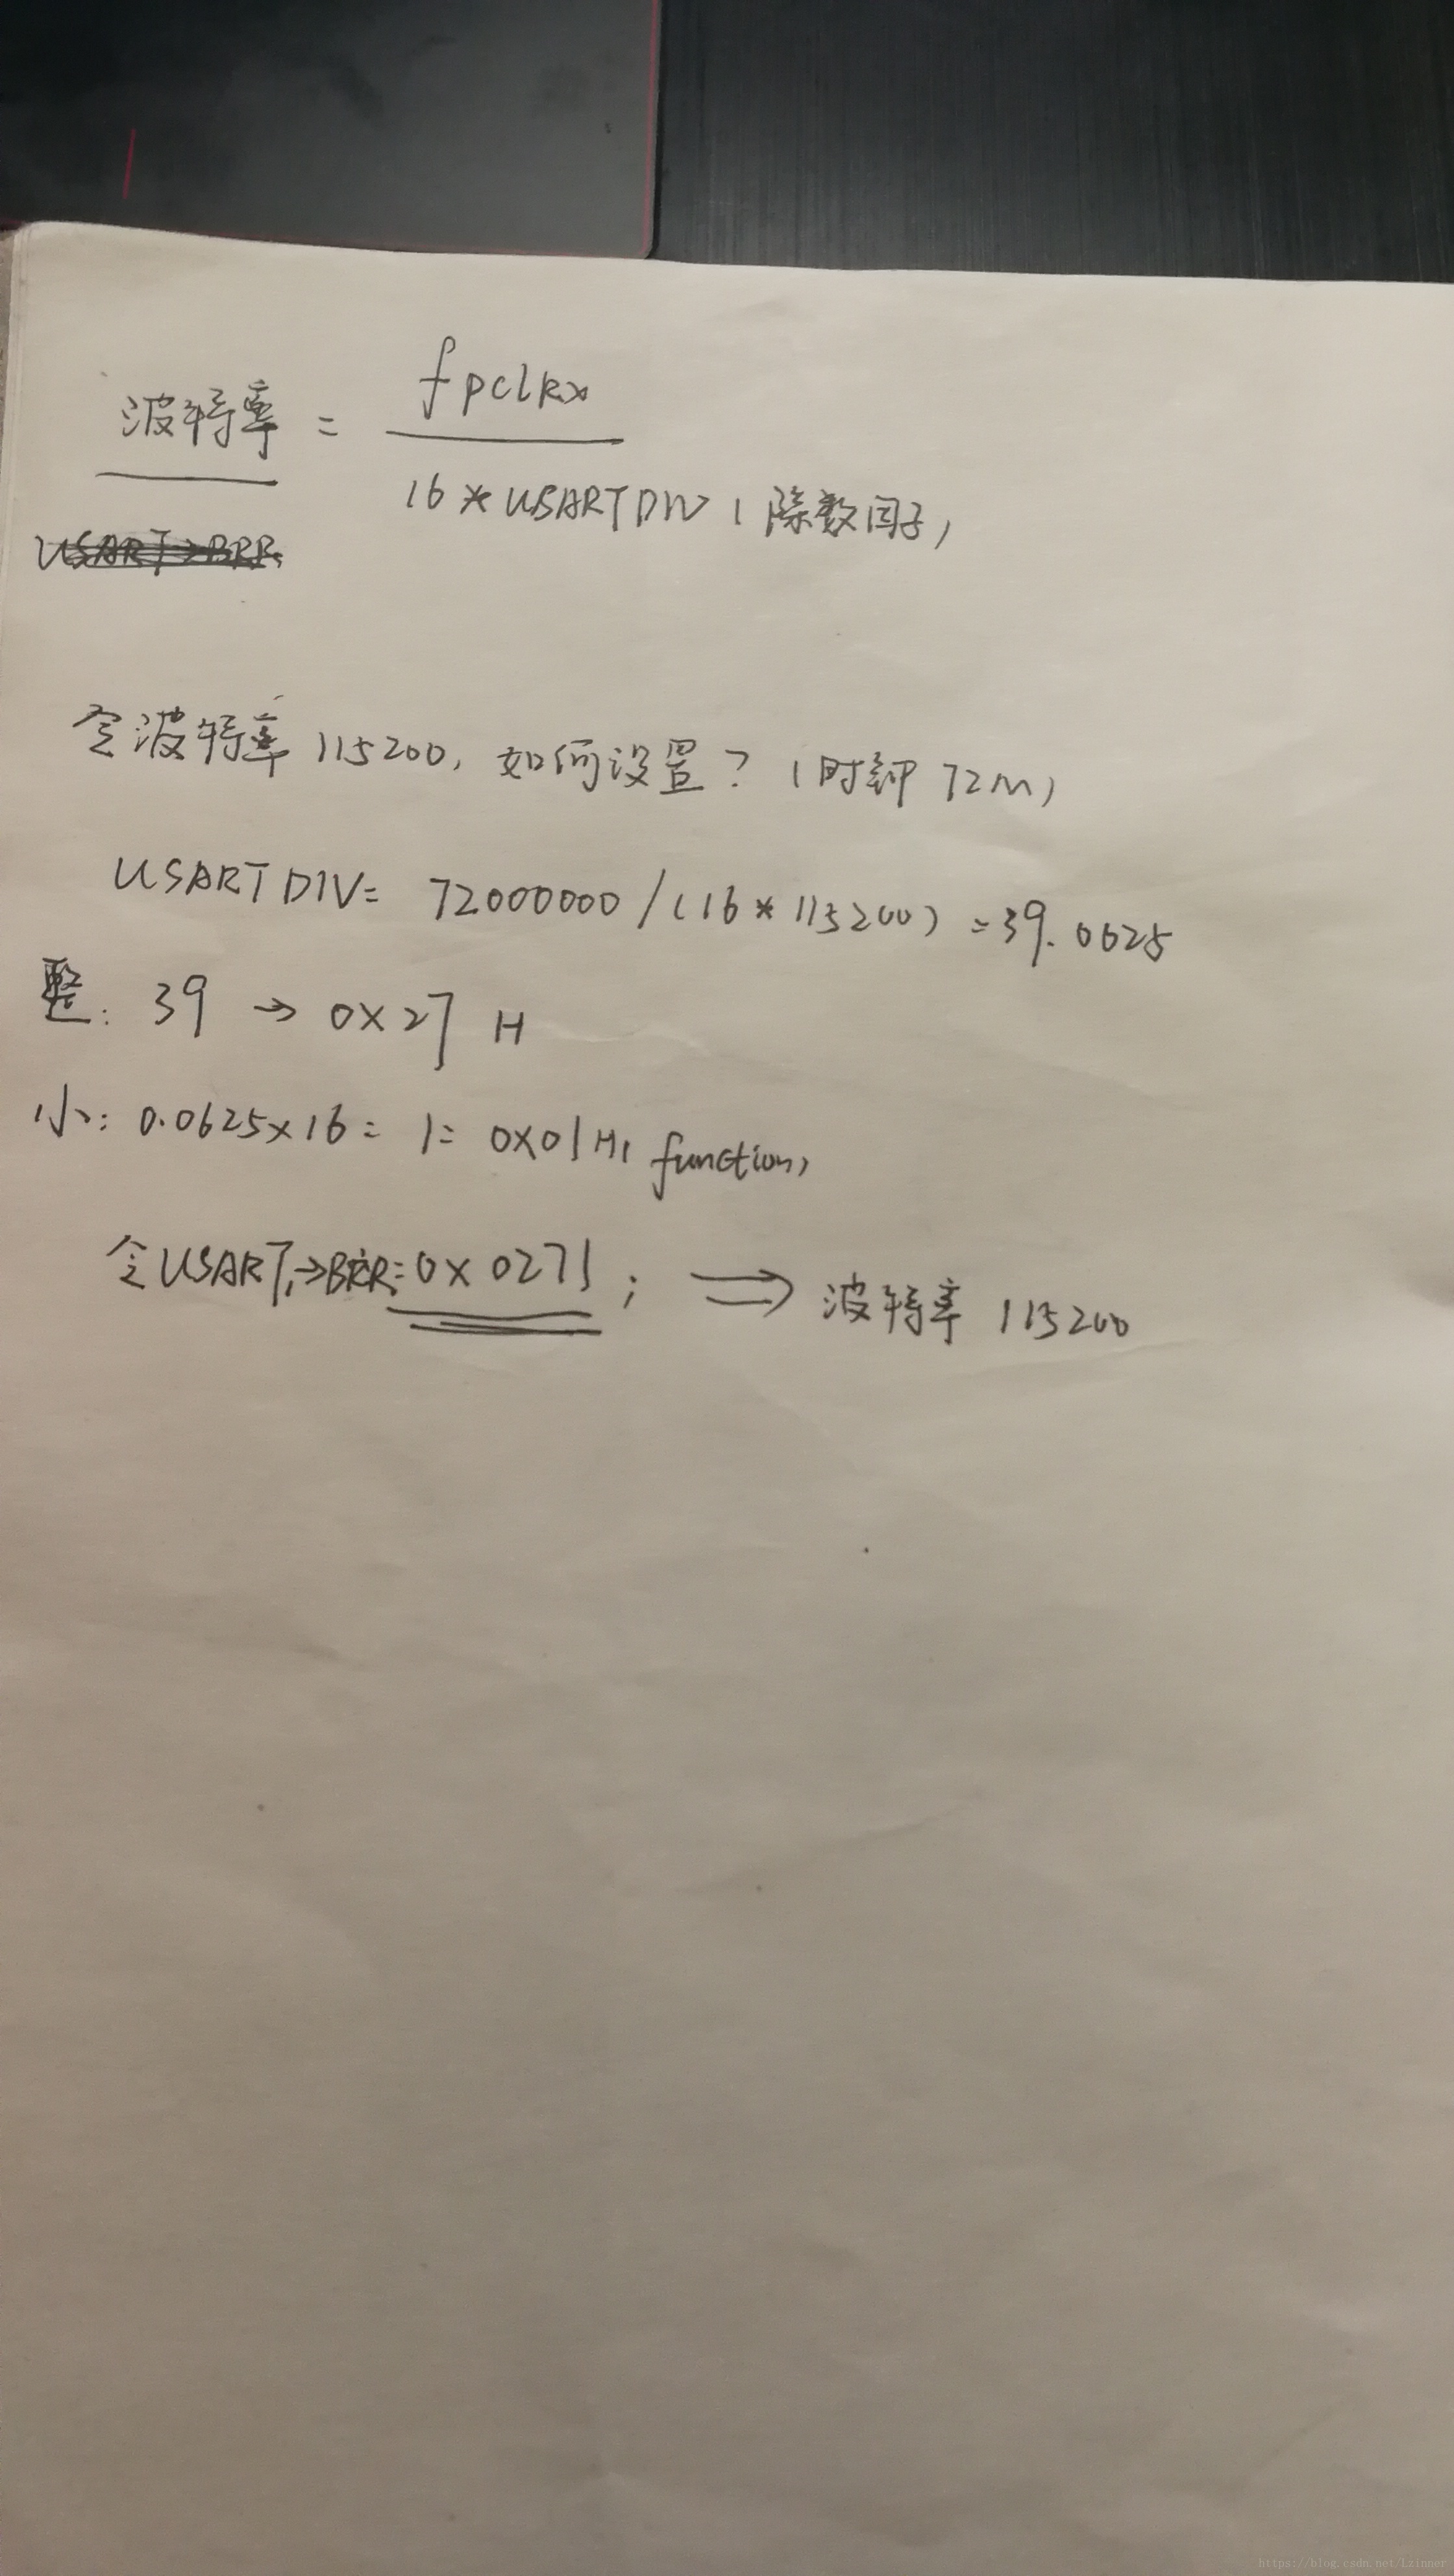 fpclkx
波特率 =
16 * USARTDIV (除数因子)
USART->BRR
令波特率 115200, 如何设置? (时钟 72M)
USARTDIV = 72000000 / (16 * 115200) = 39.0625
整: 39 → 0X27 H
小: 0.0625x16 = 1 = 0X01H( function)
令USART1->BRR=0x0271; ⟹ 波特率 115200
https://blog.csdn.net/Lzinner